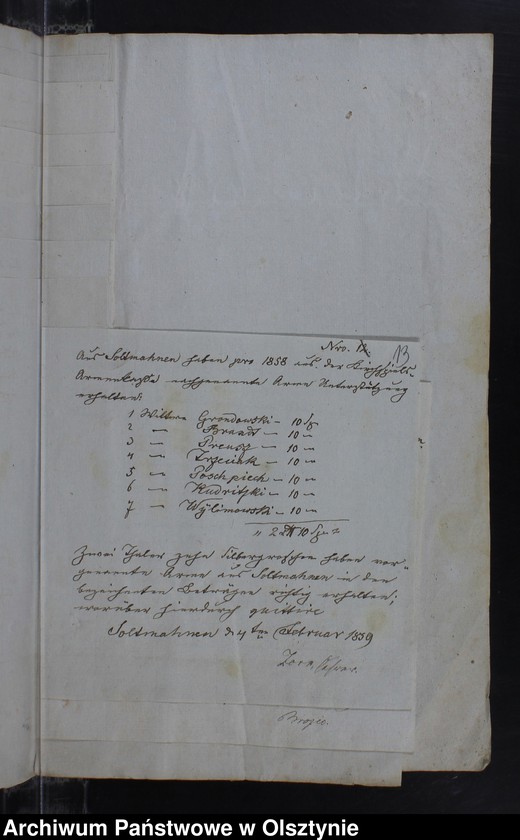 Nro. 12. 13
Aus Soltmahnen haben pro 1858 aus der Kirchspiels-
Armenkasse nachgenannte Arme Unterstützung
erhalten:
1 Wittwe Grondowski – 10 Sg
2 — Brandt – 10 —
3 — Preuss – 10 —
4 — Trzeciak – 10 —
5 — Poschpiech – 10 —
6 — Kudritzki – 10 —
7 — Wÿlimowski – 10 —
2 10 Sg
Zwei Thaler zehn Silbergroschen haben vor-
genannte Arme aus Soltmahnen in den
bezeichneten Beträgen richtig erhalten;
worüber hierdurch quittire
Soltmahnen d 4ten Februar 1859
Archiwum Państwowe w Olsztynie